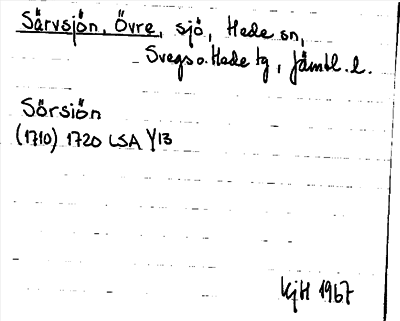 Särvsjön, Övre, sjö, Hede sn,
Svegs o. Hede tg, Jämtl. l.
Sörsiön
(1710) 1720 LSA Y13
KjH 1967